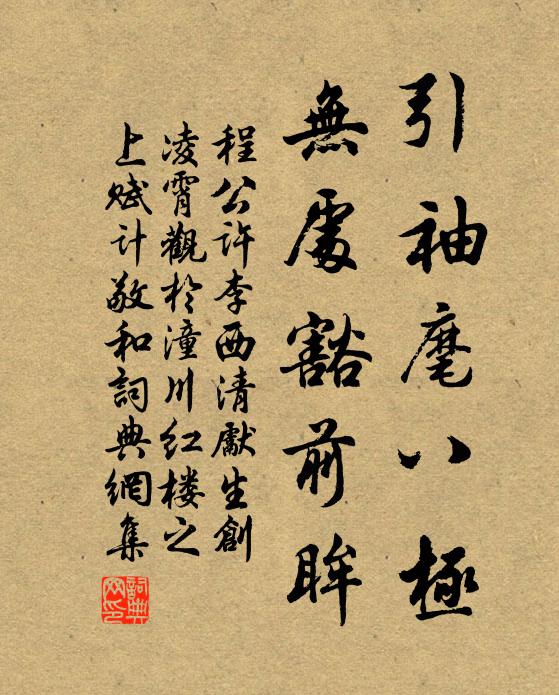 引袖麾八極
無處豁前眸
程公許李西清獻生創
凌霄觀於潼川紅楼之
上賦計敬和詞典網集
詞典網印